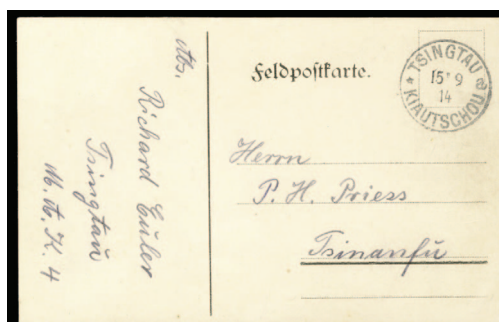 Abs.
Richard Euler
Tsingtau
M. A. K. 4
Feldpostkarte.
TSINGTAU a
15 9
14
* KIAUTSCHOU
Herrn
P. H. Priess
Tsinanfu